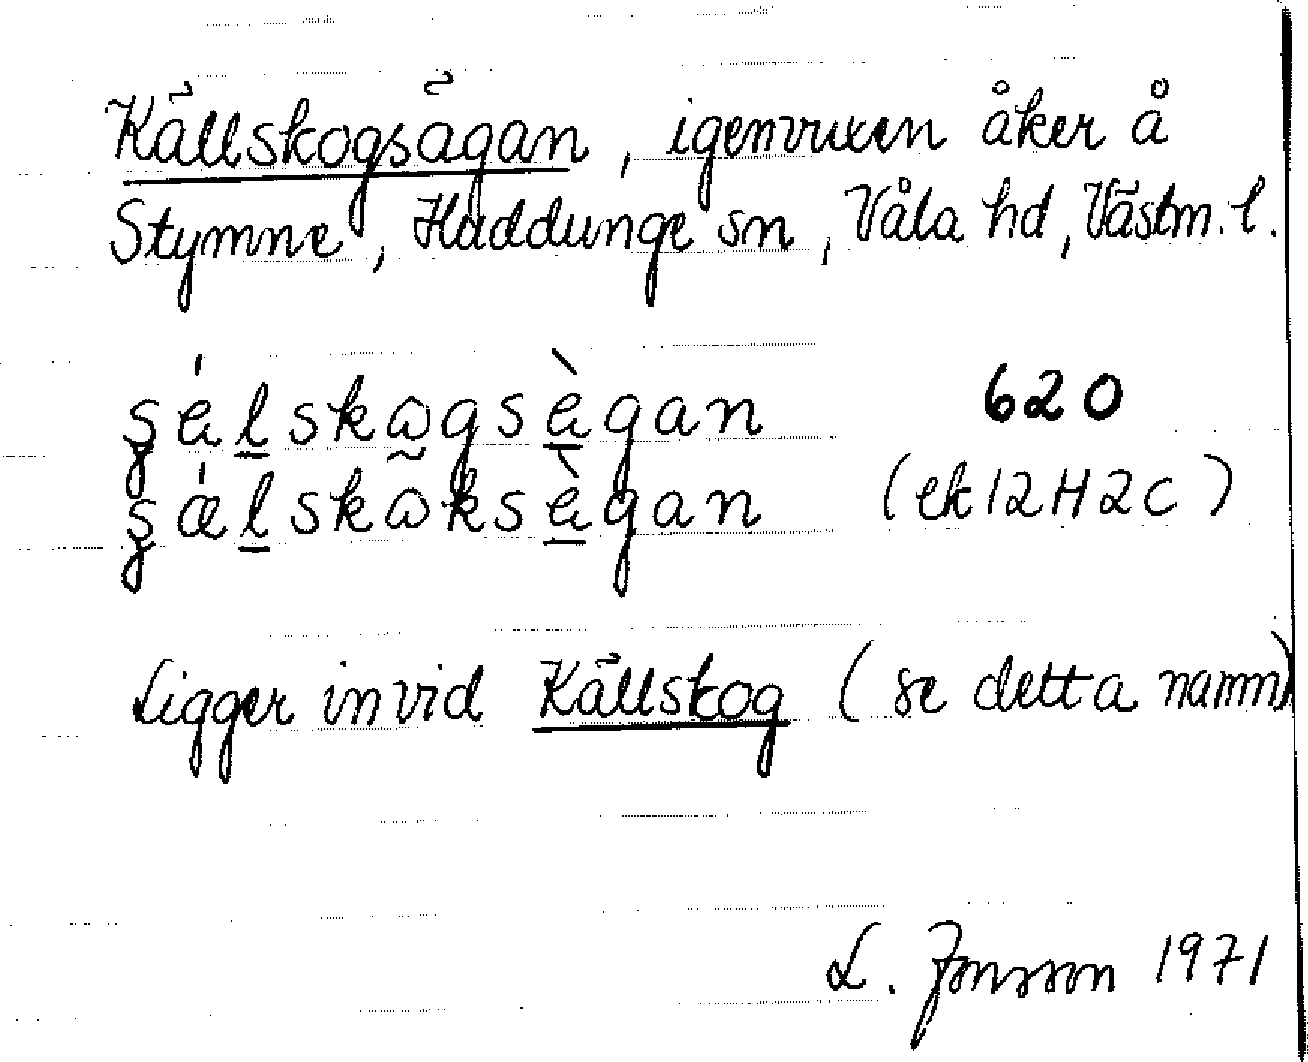 Källskogsägan, igenvuxen åker å
Stymne, Huddunge sn, Våla hd, Västm. l.
620
(ek 12H2c)
Ligger invid Källskog (se detta namn)
L. Jonsson 1971